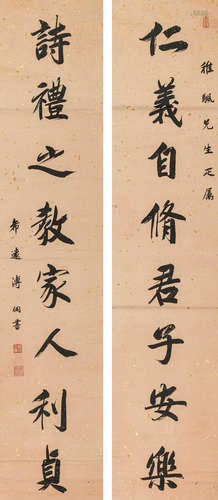 仁義自脩君子安樂
雅颿先生正屬
詩禮之教家人利貞
希遠溥侗書